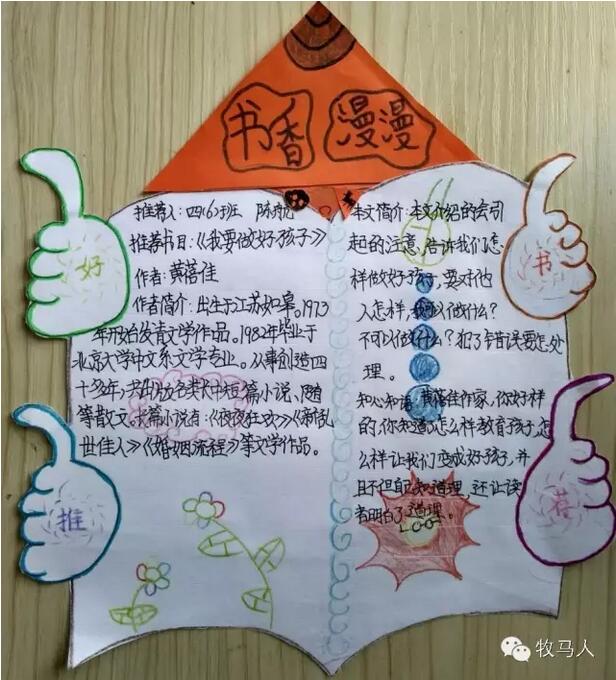 书香 漫漫
好
书
推
荐
推荐人:四(6)班 陈航
推荐书目:《我要做好孩子》
作者:黄蓓佳
作者简介:出生于江苏如皋。1973
年开始发育文学作品。1982年毕业于
北京大学中文系文学专业。从事创造四
十多年,共出版各类大中短篇小说、随
等散文。长篇小说者:《夜夜狂欢》《新乱
世佳人》《婚姻流程》等文学作品。
本文简介:本文介绍的会引
起的注意,告诉我们怎
样做好孩子,要对他
人怎样,我可以做什么?
不可以做什么?犯了错误要怎处
理。
知心知语:黄蓓佳作家,你好样
的,你知道了怎么样教育孩子,怎
么样让我们变成好孩子,并
且不但自己知道理,还让读
者明白了道理。
牧马人